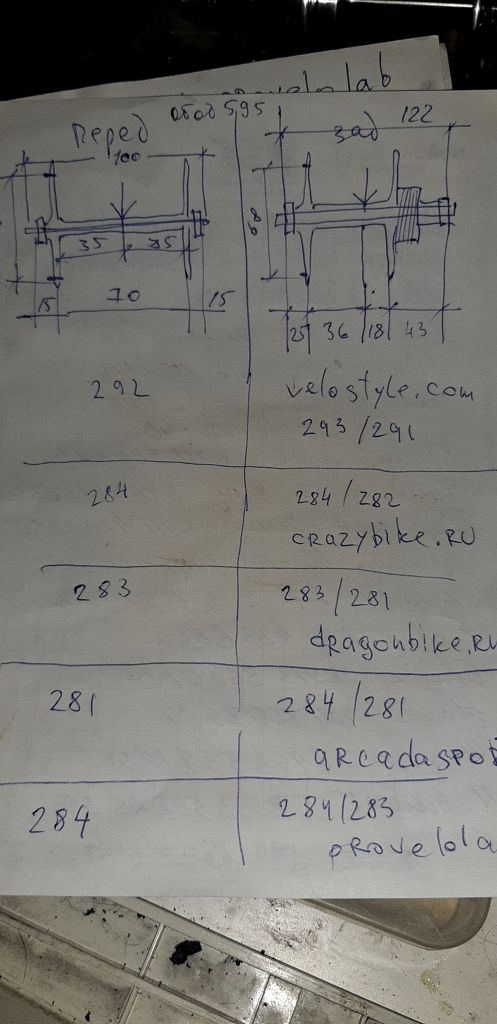 provelolab
обод 595
Перед
100
35
35
15
70
15
зад
122
68
25
36
18
43
292
velostyle.com
293/291
284
284/282
crazybike.RU
283
283/281
dragonbike.RU
281
284/281
aRcadaspoR
284
284/283
pRovelola